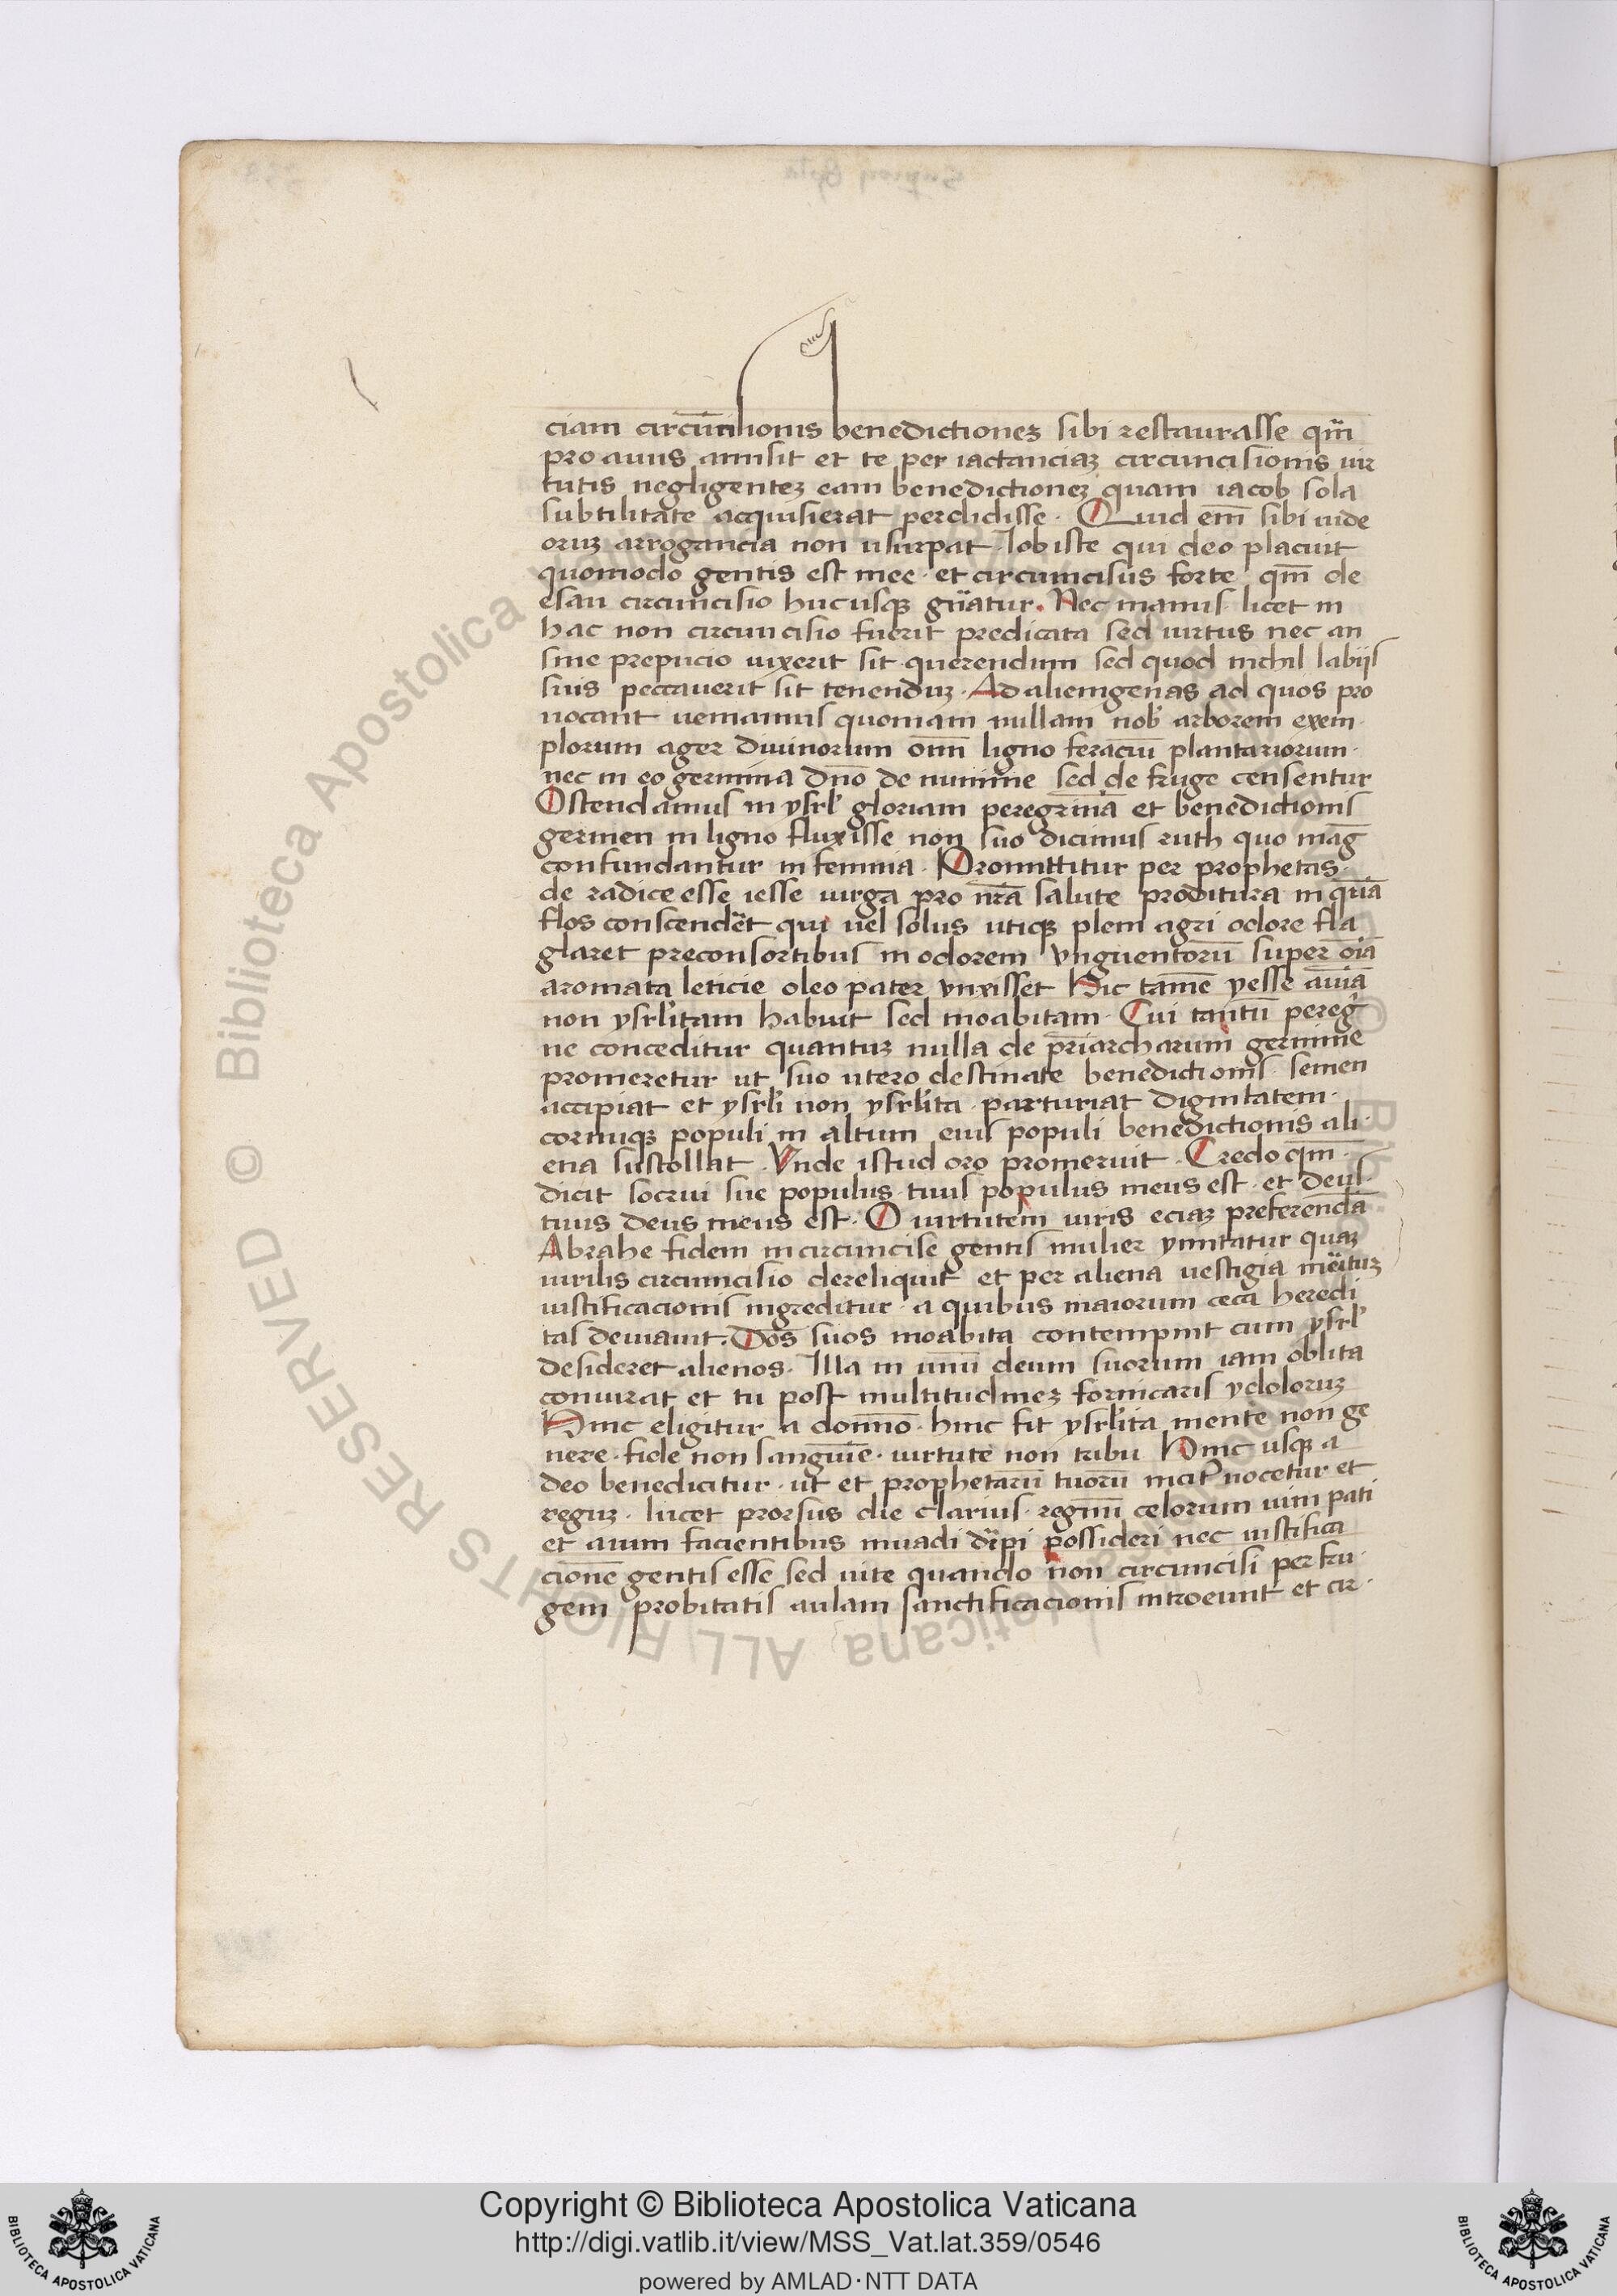 ciam circūcisionis benedictionez sibi restaurasse qm̄
pro auus amisit et te per iactanciaz circuncisionis uir
tutis negligentez eam benedictionez quam iacob sola
subtilitate acquisierat perdidisse · Quid em̄ sibi iude
oruz arrogancia non usurpat · Iob iste qui deo placuit
quomodo gentis est mee · et circumcisus forte qm̄ de
esau circuncisio hucusqz gn̄atur. Nec manus licet in
hac non circuncisio fuerit predicata sed uirtus nec an
sine prepucio uixerit sit querendum sed quod nichil labijs
suis peccauerit sit tenenduz · Ad alienigenas ad quos pro
uocant ueniamus quoniam nullam nob̓ arborem exem
plorum ager diuinorum om̄i ligno feraciū plantariorum ·
nec in eo germina dn̄o de numine sed de fruge censentur
Ostendamus in ysrl̓ gloriam peregrinā et benedictionis
germen in ligno fluxisse non suo dicimus ruth quo mag̅
confundantur in femina · Promittitur per prophetas ·
de radice esse iesse uirga pro nr̄a salute proditura in quā
flos conscendēt qui uel solus utiqz pleni agri odore fla
glaret preconsortibus in odorem vnguentorū super oīa
aromata leticie oleo pater vnxisset Hic tamē yesse auiā
non ysrl̓itam habuit sed moabitam · Cui tantū pereg̓
ne conceditur quantuz nulla de pr̄iarcharum germine
promeretur ut suo utero destinate benedictionis semen
accipiat et ysrl̓i non ysrl̓ita parturiat dignitatem ·
cornuqz populi in altum eius populi benedictionis ali ·
ena sustollat · Vnde istud oro promeruit · Credo qm̄ ·
dicit socrui sue populus tuus populus meus est · et deus
tuus deus meus est · O uirtutem uiris eciaz preferendā
Abrahe fidem incircuncise gentis mulier ymitatur quaz
uirilis circumcisio dereliquit et per aliena uestigia mēituz
iustificacionis ingreditur · a quibus maiorum ceca heredi
tas deuiauit. Dōs suos moabita contempnit cum ysrl̓
desideret alienos · Illa in unū deum suorum iam oblita
coniurat et tu post multitudinez fornicaris ydoloruz
Hinc eligitur a domīno · hinc fit ysrl̓ita mente non ge
nere · fide non sanguīe · uirtute non tribu Hinc usqz a
deo benedicitur · ut et prophetarū tuorū mat̓ uocetur et
reguz · lucet prorsus die clarius · regnū celorum uim pati
et a uim facientibus inuadi dīripi possideri nec iustifica
cionē gentis esse sed uite quando non circuncisi per fru ·
gem probitatis aulam sanctificacionis introeunt et cir ·
Copyright © Biblioteca Apostolica Vaticana
http://digi.vatlib.it/view/MSS_Vat.lat.359/0546
powered by AMLAD·NTT DATA
BIBLIOTECA APOSTOLICA VATICANA
BIBLIOTECA APOSTOLICA VATICANA